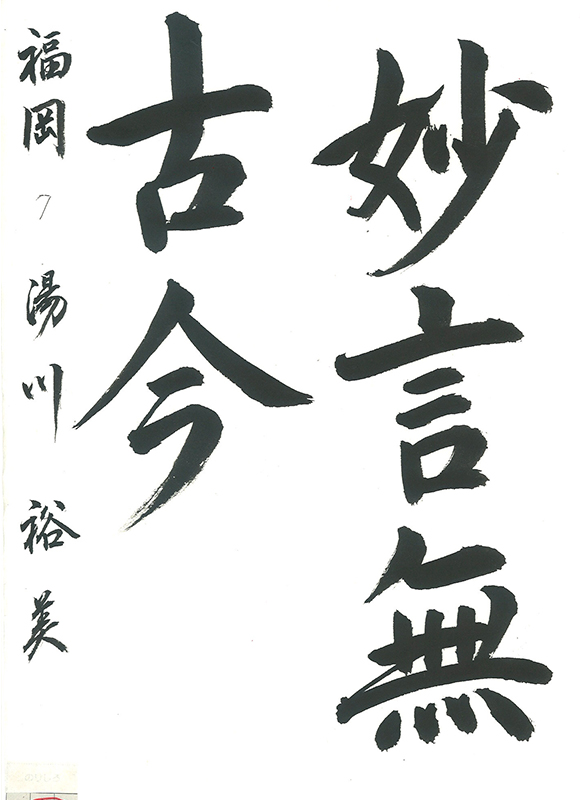 妙言無
古今
福岡 7 湯川 裕美